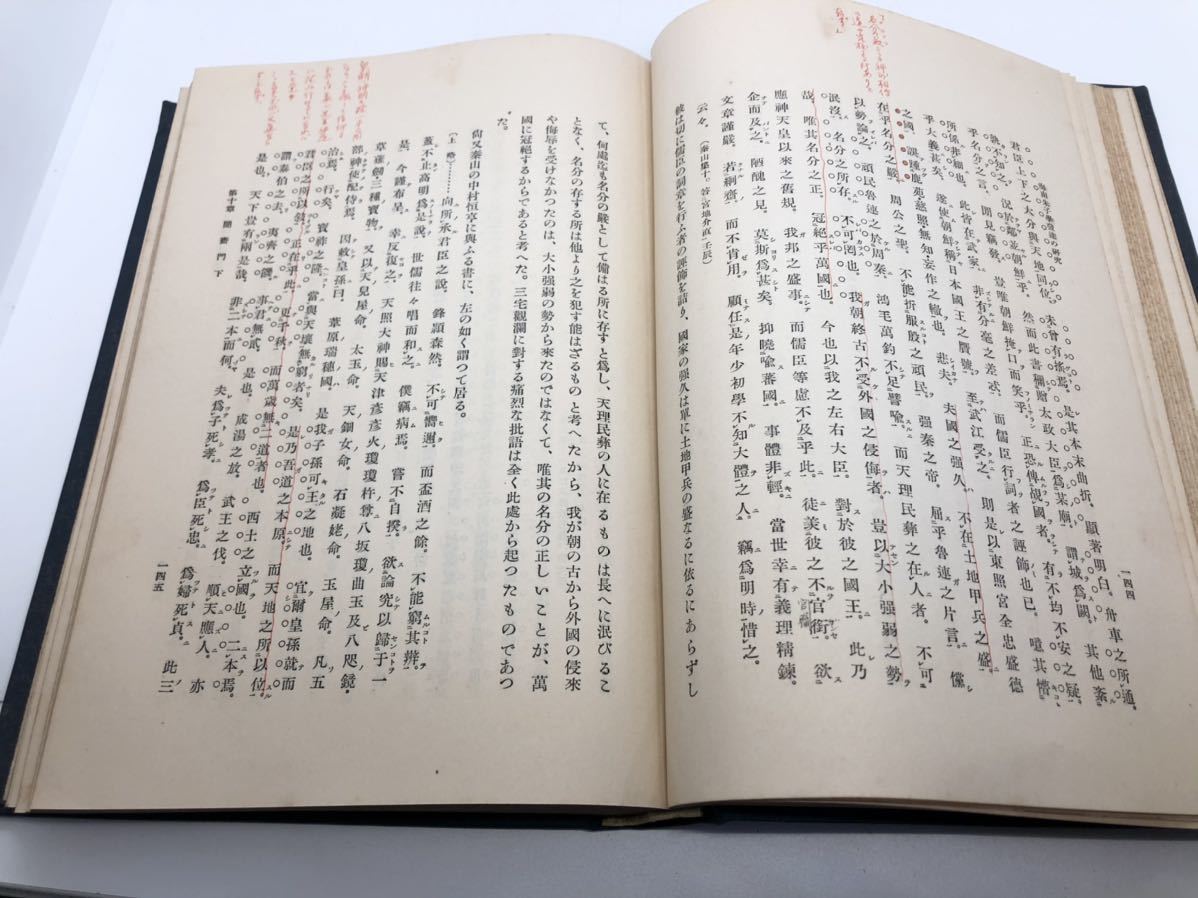 海南朱子學發達の研究
一四四
君臣上下之大分與天地同位。未曾有搖焉。是其本末曲折。顯著明白。舟車之所通。
孰不知之。況於鄰並朝鮮乎。然而此書稱贈太政大臣爲某廟。謂城爲闕。其他紊
乎名分之言。開見竊駭。豈唯朝鮮掩口而笑乎。正恐俾覘國者。有不均不安之疑。
所係非細也。此皆在武家。非有分毫之差忒。而儒臣行詞者之誣飾也已。噫其懵
乎大義甚矣。遂使朝鮮稱日本國王之贋號。至武江受之。則是以東照宮全忠盛德
之國。誤種鹿苑慈照無知妄作之轍也。悲夫。夫國之强久。不在土地甲兵之盛。
在乎名分之嚴。周公之聖。不能折服殷之頑民。强秦之帝。屈乎魯連之片言。儻
以勢論之。頑民魯連之於周秦。鴻毛萬鈞不足譬喩。而天理民彝之在人者。不可
泯沒。名分之所存。不可罔也。我朝終古不受外國之侵侮者。豈以大小强弱之勢
哉。唯其名分之正。冠絕乎萬國也。今也以我之左右大臣。對於彼之國王。此乃
應神天皇以來之舊規。我邦之盛事。而儒臣等慮不及乎此。徒美彼之官銜。欲
企而及之。陋醜之見。莫斯爲甚矣。抑曉喩蕃國。事體非輕。當世幸有義理精鍊。
文章謹嚴。若絅齋。而不肯用。顧任是年少初學不知大體之人。竊爲明時惜之。
云々。(秦山集十、答宮地介直(壬辰))
彼は切に儒臣の詞章を行ふ者の誣飾を詰り、國家の强久は單に土地甲兵の盛なるに依るにあらずし
て、何處迄も名分の嚴として備はる所に存すと爲し、天理民彝の人に在るものは長へに泯びるこ
となく、名分の存する所は他より之を犯す能はざるものと考へたから、我が朝の古から外國の侵來
や侮辱を受けなかつたのは、大小强弱の勢から來たのではなくて、唯其の名分の正しいことが、萬
國に冠絕するからであると考へた。三宅觀瀾に對する痛烈な批語は全く此處から起つたものであつ
た。
尙又秦山の中村恒亨に與ふる書に、左の如く謂つて居る。
(上略)………向所承君臣之說。鋒頴森然。不可嚮邇。而盃酒之餘。不能窮其辨。
蓋不止高明爲是說。世儒往々唱而和之。僕竊病焉。嘗不自揆。欲論究以歸于一
是。今謹布呈。幸反復之。天照大神賜天津彥彥火瓊瓊杵尊八坂瓊曲玉及八咫鏡
草薙劒三種寶物。又以天兒屋命。太玉命。天鈿女命。石凝姥命。玉屋命。凡五
部神使配侍焉。因敕皇孫曰。葦原瑞穗國。是我子孫可王之地也。宜爾皇孫就而
治焉。行矣。寶祚之隆。當與天壤無窮者矣。是乃吾道之本原。而天地之所以位。
君臣之所以敍。正在乎此。更千秋。而萬歲無二道者也。西土之立國也。二本焉。
謂泰伯之去。夷齊之饑。事君無貳。是也。成湯之放。武王之伐。順天應人。亦
是也。天下豈有兩是哉。非二本而何。夫爲子死孝。爲臣死忠。爲婦死貞。此三
第十章 闇齋門下
一四五